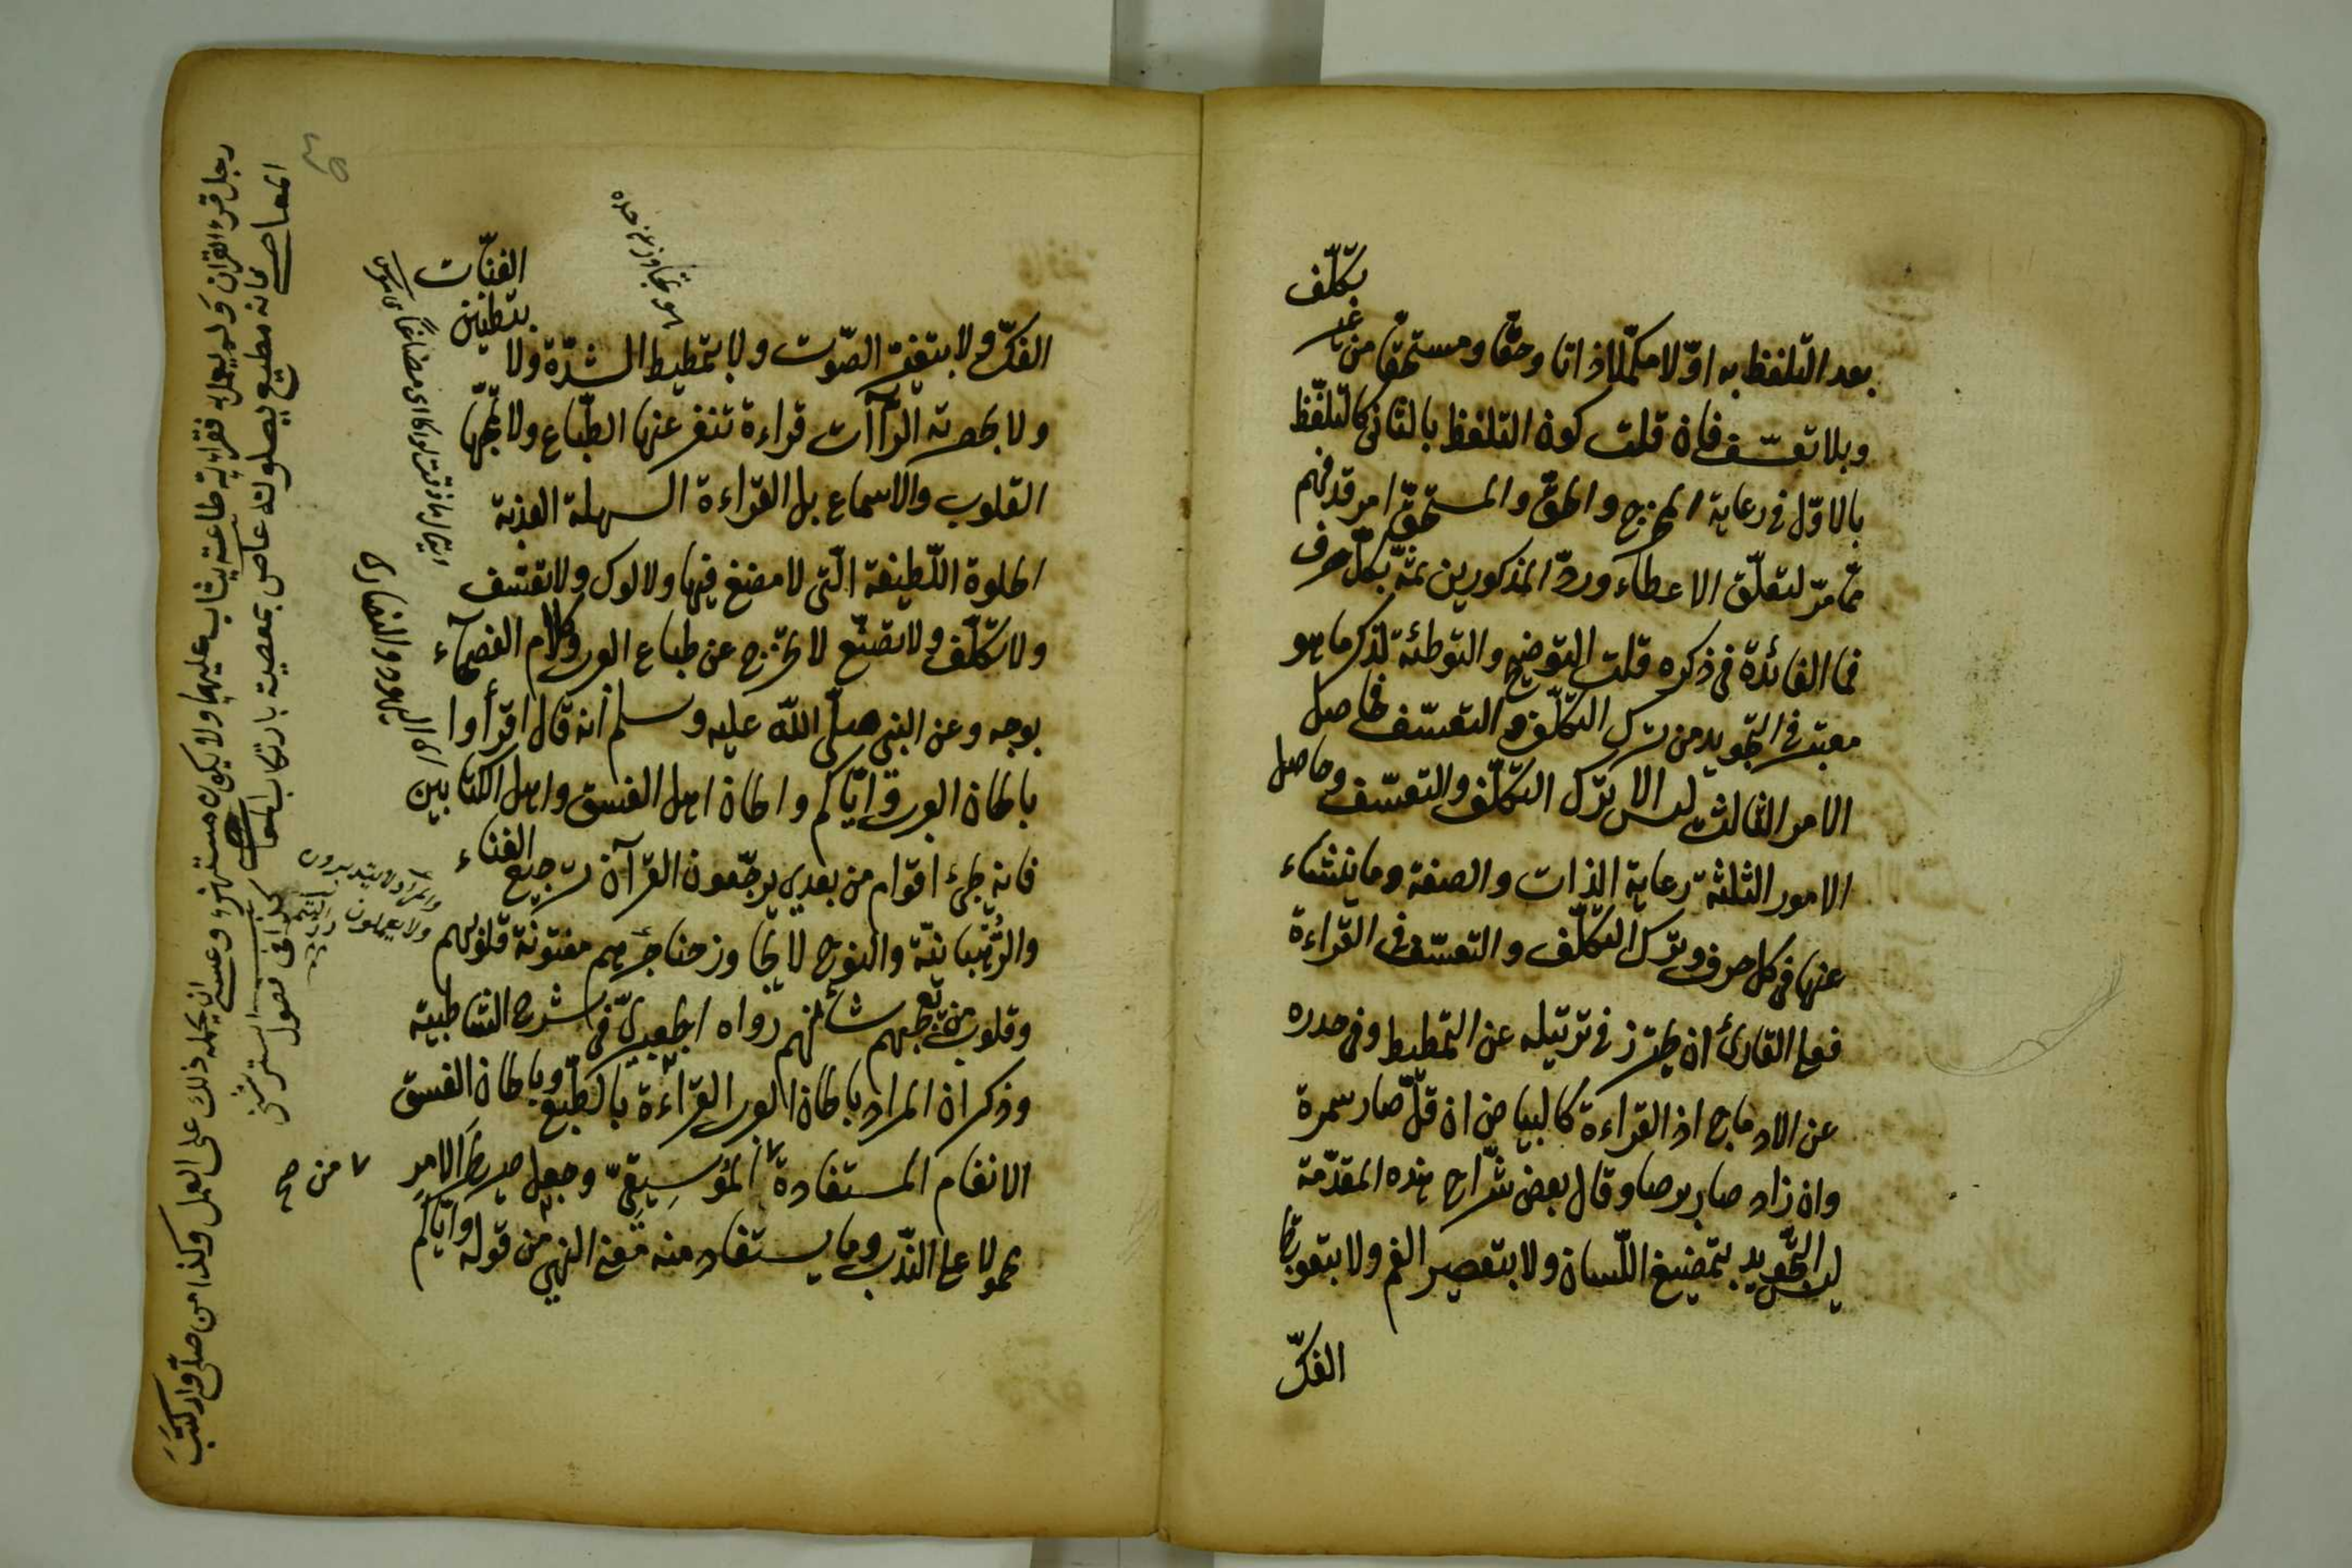 بعد التلفظ به اوّلا مكمّلا ذاتا وحقّا ومستحقّا من غير تكلّف
وبلا تعسّف فان قلت كون التلفظ بالثانى كالتلفّظ
بالاوّل فى رعاية المخرج والحقّ والمستحقّ امر قد فهم
ممّا مرّ لتعلّق الاعطاء وردّ المذكورين ثمّه بكلّ حرف
فما الفائدة فى ذكره قلت التوضيح والتوطئة لذكر ما هو
معتبر فى التجويد من ترك التكلّف والتعسّف فحاصل
الامر الثالث ليس الا ترك التكلّف والتعسّف وحاصل
الامور الثلثة رعاية الذات والصفة وما ينشاء
عنها فى كل حرف وترك التكلّف والتعسّف فى القراءة
فعلى القارئ ان يحترز فى ترتيله عن التمطيط وفى حدره
عن الادماج اذ القراءة كالبياض ان قلّ صار سمرة
وان زاد صار برصا وقال بعض شرّاح هذه المقدّمة
ليس التجويد بتمضيغ اللّسان ولا بتقعير الفم ولا بتعويج
الفكّ
الفكّ ولا بترعيد الصّوت ولا بتمطيط الشدّة ولا بتطنين الغنّات
ولا بحصرمة الرّاآت قراءة تنفر عنها الطّباع ولا تمجّها
القلوب والاسماع بل القراءة السهلة العذبة
الحلوة اللّطيفة الّتى لا مضغ فيها ولا لوك ولا تعسّف
ولا تكلّف ولا تصنّع لا تخرج عن طباع العرب وكلام الفصحاء
بوجه وعن النبى صلّى اللّه عليه وسلم انه قال اقرأوا
بالحان العرب وايّاكم والحان اهل الفسق واهل الكتابين
فانه يجئ اقوام من بعدى يرجّعون القرآن ترجيع الغناء
والرُّهبانيّة والنوح لا يجاوز حناجرهم مفتونة قلوبهم
وقلوب من يعجبهم شأنهم رواه الجعبرىّ فى شرح الشاطبية
وذكر ان المراد بالحان العرب القراءة بالطّبع وبالحان الفسق
الانغام المستفادة من الموسيقىّ وجعل صريح الامر
محمولا على النّدب وما يستفاد منه معنى النهى من قوله وايّاكم
هو تجاوز عن حده
اى اليهود والنصارى
والمراد لا يتدبرون
ولا يعملون
٧ من صح
رجل قرء القران ولم يعمل به فقراءته طاعته يثاب عليها ولا يكون مستهزء وعسى ان يحمله ذلك على العمل وكذا من صلّى وارتكب
المعاصى فانه مطيع بصلوته عاص بمعصيته بارتكاب المعاصى كذا فى فصول استروشنى